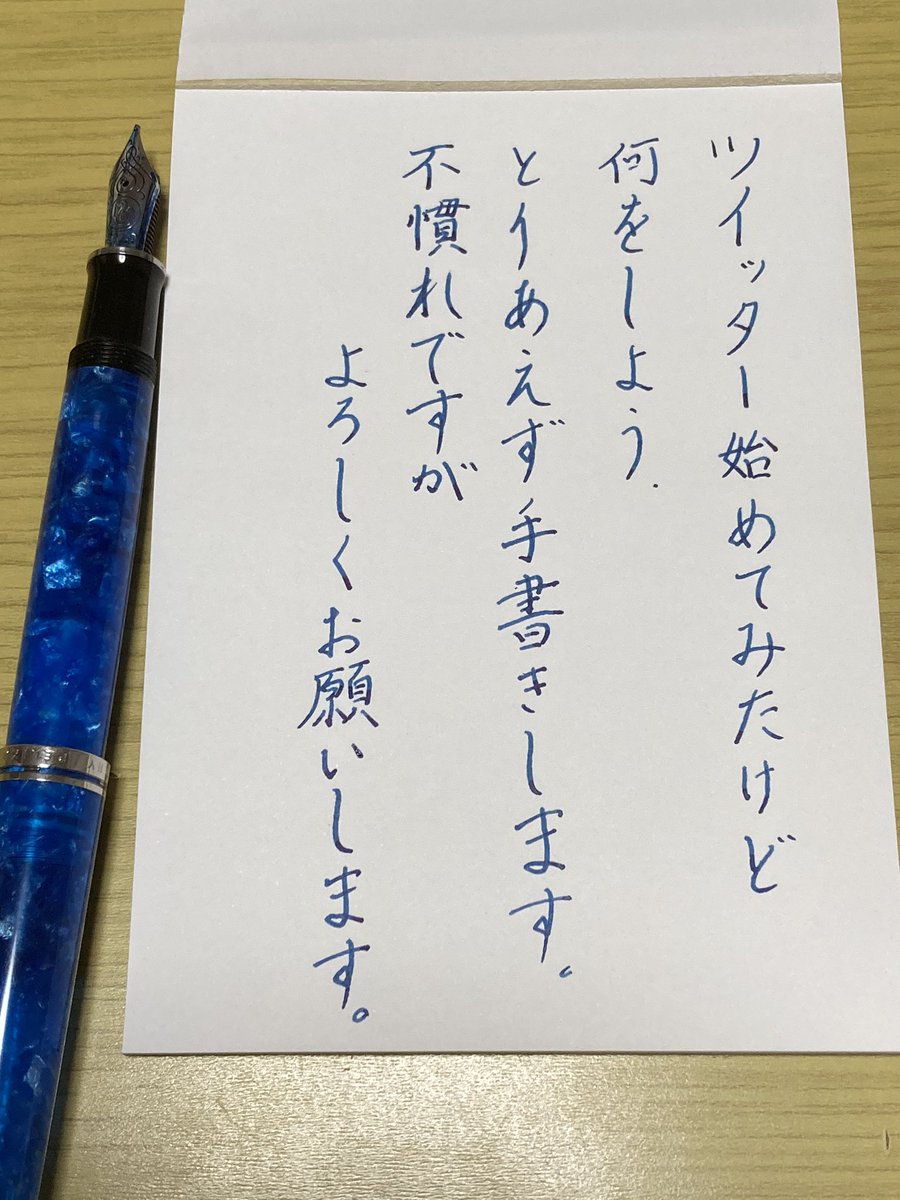 ツイッター始めてみたけど
何をしよう.
とりあえず手書きします。
不慣れですが
よろしくお願いします。